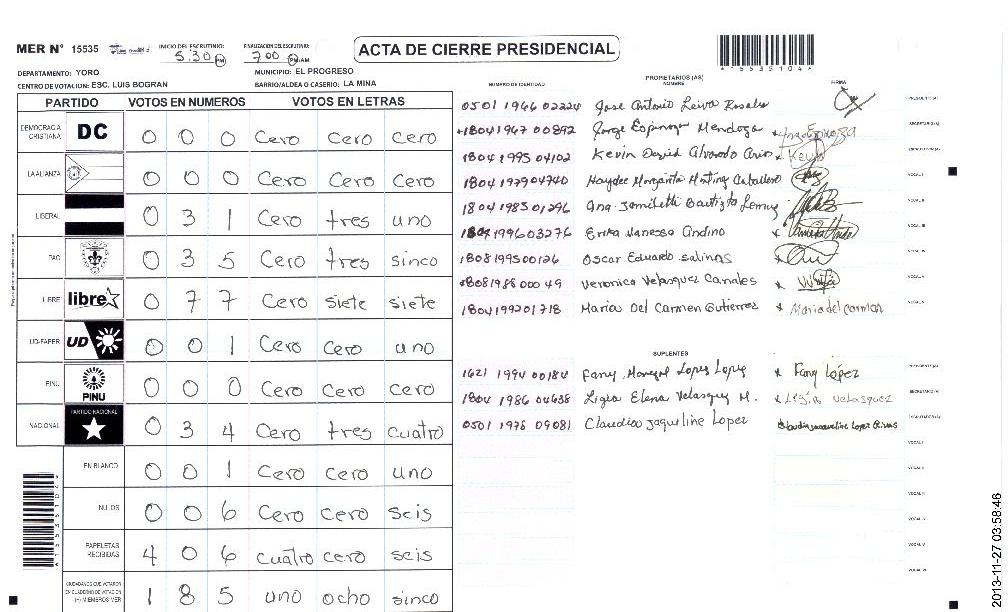 MER N° 15535 INICIO DEL ESCRUTINIO: 5:30 PM FINALIZACION DEL ESCRUTINIO: 7:00 PM/AM ACTA DE CIERRE PRESIDENCIAL
DEPARTAMENTO: YORO MUNICIPIO: EL PROGRESO
CENTRO DE VOTACION: ESC. LUIS BOGRAN BARRIO/ALDEA O CASERIO: LA MINA
PARTIDO VOTOS EN NUMEROS VOTOS EN LETRAS
DEMOCRACIA CRISTIANA DC 0 0 0 Cero Cero Cero
LA ALIANZA 0 0 0 Cero Cero Cero
LIBERAL 0 3 1 Cero tres uno
PAC 0 3 5 Cero tres sinco
LIBRE libre 0 7 7 Cero siete siete
UD-FAPER UD 0 0 1 Cero Cero uno
PINU PINU 0 0 0 Cero Cero Cero
NACIONAL PARTIDO NACIONAL 0 3 4 Cero tres cuatro
EN BLANCO 0 0 1 Cero cero uno
NULOS 0 0 6 Cero Cero seis
PAPELETAS RECIBIDAS 4 0 6 cuatro cero seis
CIUDADANOS QUE VOTARON EN CUADERNO DE VOTACION (+) MIEMBROS MER 1 8 5 uno ocho sinco
NUMERO DE IDENTIDAD PROPIETARIOS (AS) NOMBRE FIRMA
0501 1966 02224 Jose Antonio Leiva Rosales PRESIDENTE (A)
1804 1967 00892 Jorge Espinoza Mendoza SECRETARIO (A)
1804 1995 04102 Kevin David Alvarado ESCRUTADOR (A)
1804 1979 04740 Haydee Margarita Caballero VOCAL I
1804 1985 01296 Ana Bautista VOCAL II
1804 1996 03276 Erika Vanessa Andino VOCAL III
1808 1995 00126 Oscar Eduardo Salinas VOCAL IV
1808 1986 000 49 Veronica Velasquez Canales VOCAL V
1804 1992 01718 Maria Del Carmen Gutierrez Maria del Carmen
SUPLENTES
1621 1994 00184 Fany Lopez Lopez Fany López PRESIDENTE (A)
1804 1986 04638 Ligia Elena Velasquez M. Ligia Velasquez SECRETARIO (A)
0501 1978 09081 Claudia Jaqueline Lopez Claudia Jaqueline Lopez ESCRUTADOR (A)
VOCAL I
VOCAL II
VOCAL III
VOCAL IV
VOCAL V
VOCAL VI
2013-11-27 03:58:46